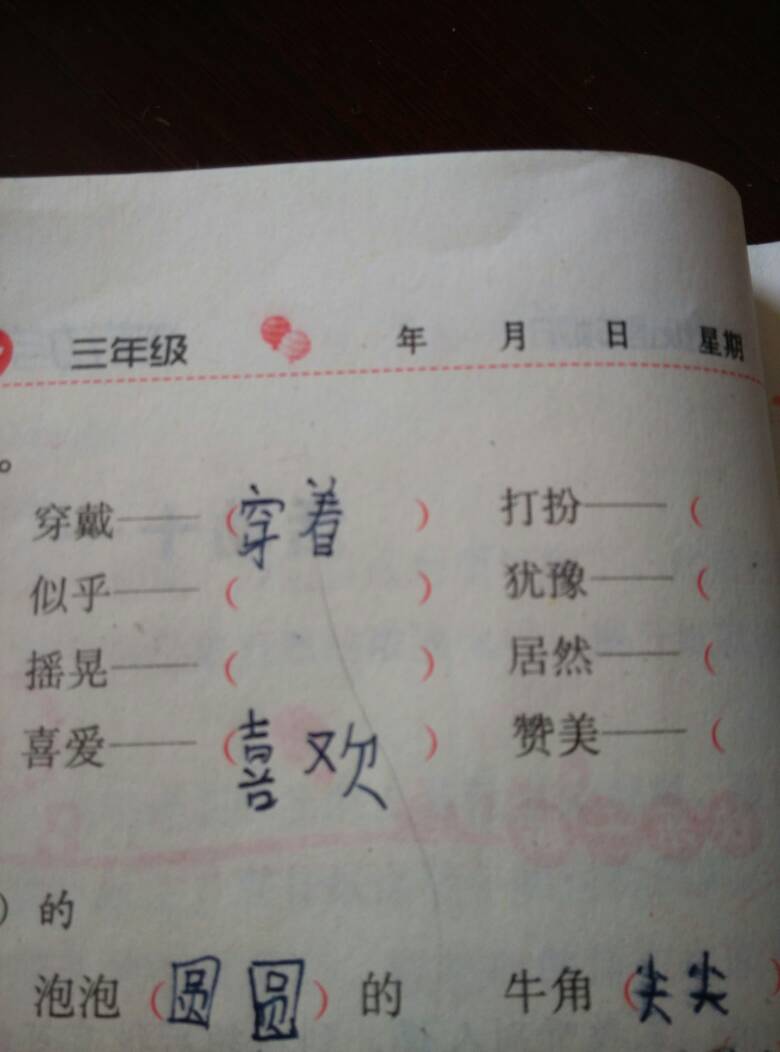 三年级 年 月 日 星期
。
穿戴——（穿着） 打扮——（
似乎——（ ） 犹豫——（
摇晃——（ ） 居然——（
喜爱——（喜欢） 赞美——（
）的
泡泡（圆圆）的 牛角（尖尖）